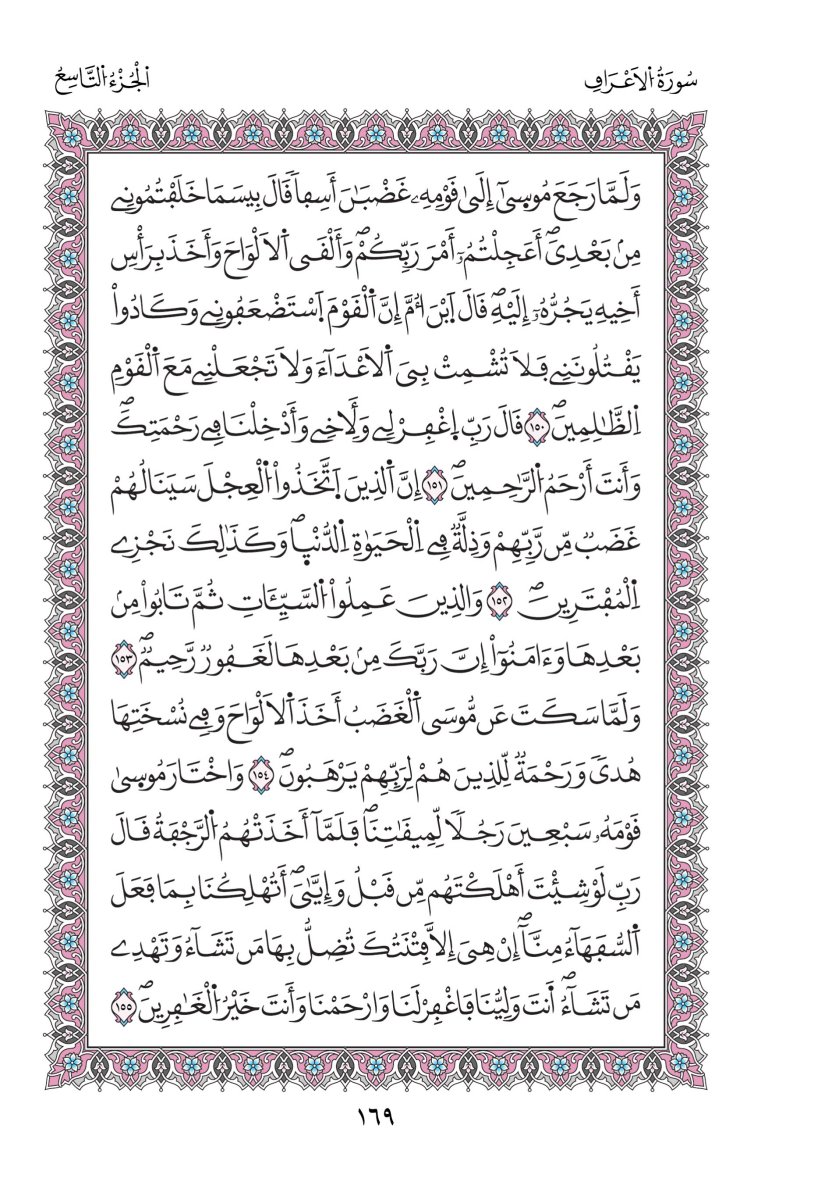 سُورَةُ اُ۬لَاعْرَافِ
اَ۬لْجُزْءُ اُ۬لتَّاسِعُ
وَلَمَّا رَجَعَ مُوس۪يٰٓ إِلَيٰ قَوْمِهِۦ غَضْبَٰنَ أَسِفاٗ قَالَ بِيسَمَا خَلَفْتُمُونِے
مِنۢ بَعْدِيَۖ أَعَجِلْتُمُۥٓ أَمْرَ رَبِّكُمْۖ وَأَلْقَى اَ۬لَالْوَاحَ وَأَخَذَ بِرَأْسِ
أَخِيهِ يَجُرُّهُۥٓ إِلَيْهِۖ قَالَ اَ۪بْنَ أُمَّ إِنَّ اَ۬لْقَوْمَ اَ۪سْتَضْعَفُونِے وَكَادُواْ
يَقْتُلُونَنِے فَلَا تُشْمِتْ بِيَ اَ۬لَاعْدَآءَ وَلَا تَجْعَلْنِے مَعَ اَ۬لْقَوْمِ
اِ۬لظَّٰلِمِينَۖ ١٥٠ قَالَ رَبِّ اِ۪غْفِرْ لِے وَلِأَخِے وَأَدْخِلْنَا فِے رَحْمَتِكَۖ
وَأَنتَ أَرْحَمُ اُ۬لرَّٰحِمِينَۖ ١٥١ إِنَّ اَ۬لذِينَ اَ۪تَّخَذُواْ اُ۬لْعِجْلَ سَيَنَالُهُمْ
غَضَبٞ مِّن رَّبِّهِمْ وَذِلَّةٞ فِے اِ۬لْحَيَوٰةِ اِ۬لدُّنْي۪اۖ وَكَذَٰلِكَ نَجْزِے
اِ۬لْمُفْتَرِينَۖ ١٥٢ وَالذِينَ عَمِلُواْ اُ۬لسَّيِّـَٔاتِ ثُمَّ تَابُواْ مِنۢ
بَعْدِهَا وَءَامَنُوٓاْ إِنَّ رَبَّكَ مِنۢ بَعْدِهَا لَغَفُورٞ رَّحِيمٞۖ ١٥٣
وَلَمَّا سَكَتَ عَن مُّوسَى اَ۬لْغَضَبُ أَخَذَ اَ۬لَالْوَاحَ وَفِے نُسْخَتِهَا
هُديٗ وَرَحْمَةٞ لِّلذِينَ هُمْ لِرَبِّهِمْ يَرْهَبُونَۖ ١٥٤ وَاخْتَارَ مُوس۪يٰ
قَوْمَهُۥ سَبْعِينَ رَجُلاٗ لِّمِيقَٰتِنَاۖ فَلَمَّآ أَخَذَتْهُمُ اُ۬لرَّجْفَةُ قَالَ
رَبِّ لَوْ شِئْتَ أَهْلَكْتَهُم مِّن قَبْلُ وَإِيَّٰيَۖ أَتُهْلِكُنَا بِمَا فَعَلَ
اَ۬لسُّفَهَآءُ مِنَّآۖ إِنْ هِيَ إِلَّا فِتْنَتُكَ تُضِلُّ بِهَا مَن تَشَآءُ وَتَهْدِے
مَن تَشَآءُۖ أَنتَ وَلِيُّنَا فَاغْفِرْ لَنَا وَارْحَمْنَا وَأَنتَ خَيْرُ اُ۬لْغَٰفِرِينَۖ ١٥٥
١٦٩